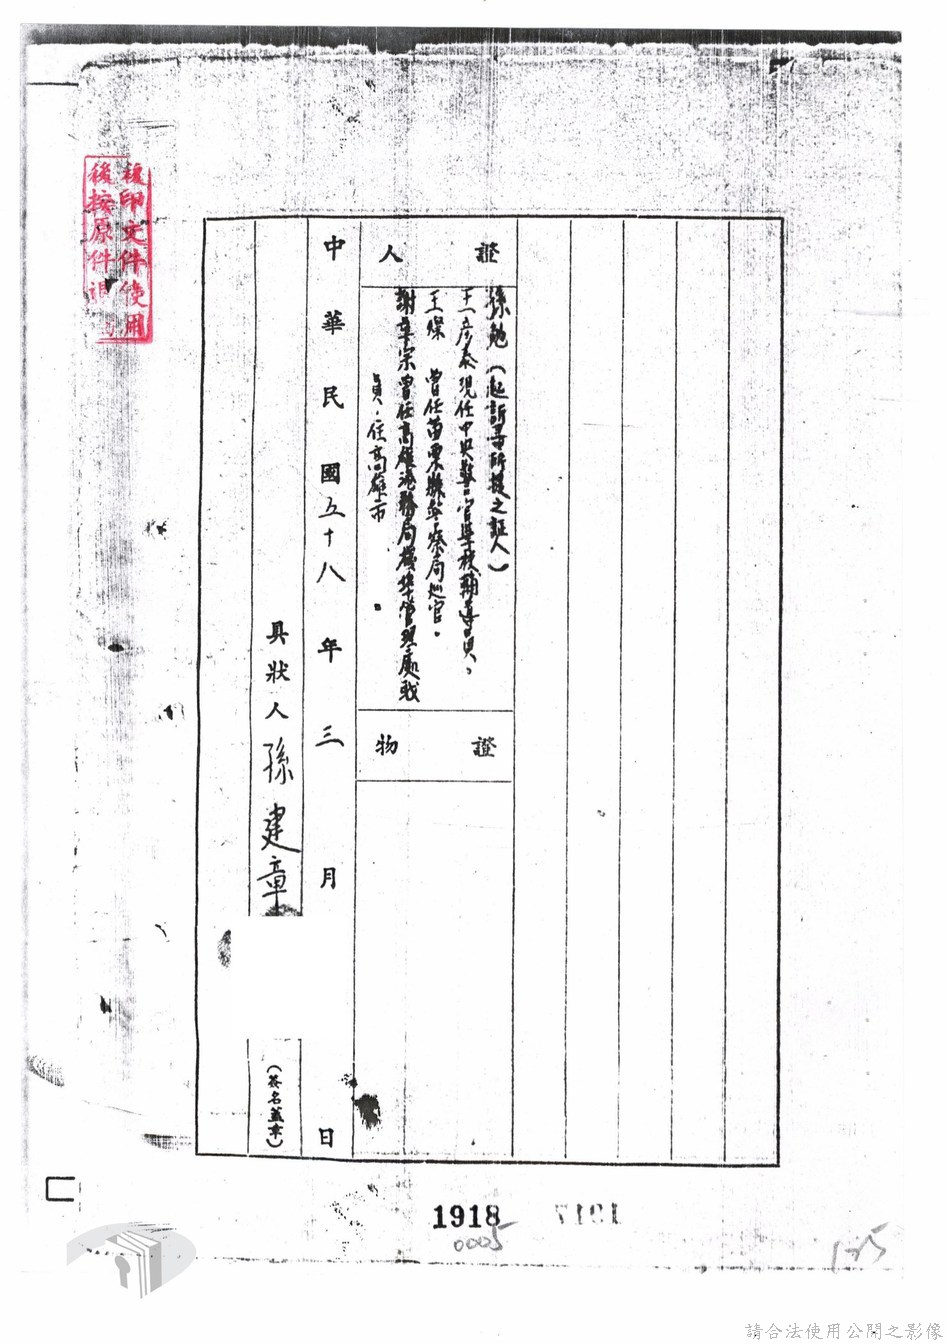 證人
孫勉（起訴書所提之証人）
王彥泰 現任中央警官學校輔導員，
王燦 曾任苗栗縣警察局巡官。
謝章宗曾任高雄港務局機準管理處職
員，住高雄市。
證物
中華民國五十八年三月 日
具狀人 孫建章
（簽名蓋章）
複印文件使用
後按原件
1918
0005
1-5
請合法使用公開之影像